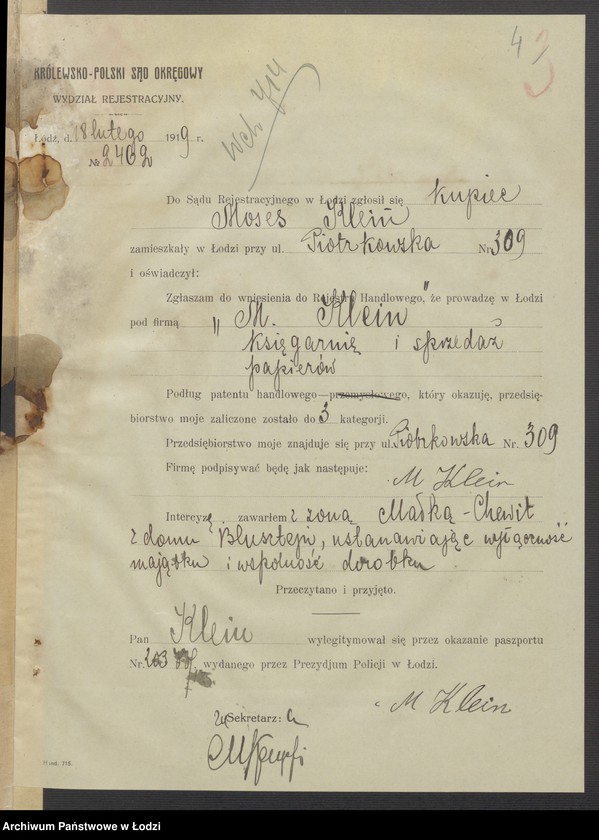 4
3
KRÓLEWSKO-POLSKI SĄD OKRĘGOWY
WYDZIAŁ REJESTRACYJNY.
Łódź, d. 18 lutego 1919 r.
№ 2402
Do Sądu Rejestracyjnego w Łodzi zgłosił się kupiec
Moses Klein
zamieszkały w Łodzi przy ul. Piotrkowska Nr. 309
i oświadczył:
Zgłaszam do wniesienia do Rejestru Handlowego, że prowadzę w Łodzi
pod firmą „M. Klein"
księgarnię i sprzedaż
papierów
Podług patentu handlowego—przemysłowego, który okazuję, przedsię-
biorstwo moje zaliczone zostało do 3 kategorji.
Przedsiębiorstwo moje znajduje się przy ul. Piotrkowska Nr. 309
Firmę podpisywać będę jak następuje:
M Klein
Intercyzę zawarłem z żoną Małką-Chewit
z domu Blusztejn, ustanawiając wyłączność
majątku i wspólność dorobku
Przeczytano i przyjęto.
Pan Klein wylegitymował się przez okazanie paszportu
Nr. 203 wydanego przez Prezydjum Policji w Łodzi.
M Klein
Sekretarz:
Archiwum Państwowe w Łodzi